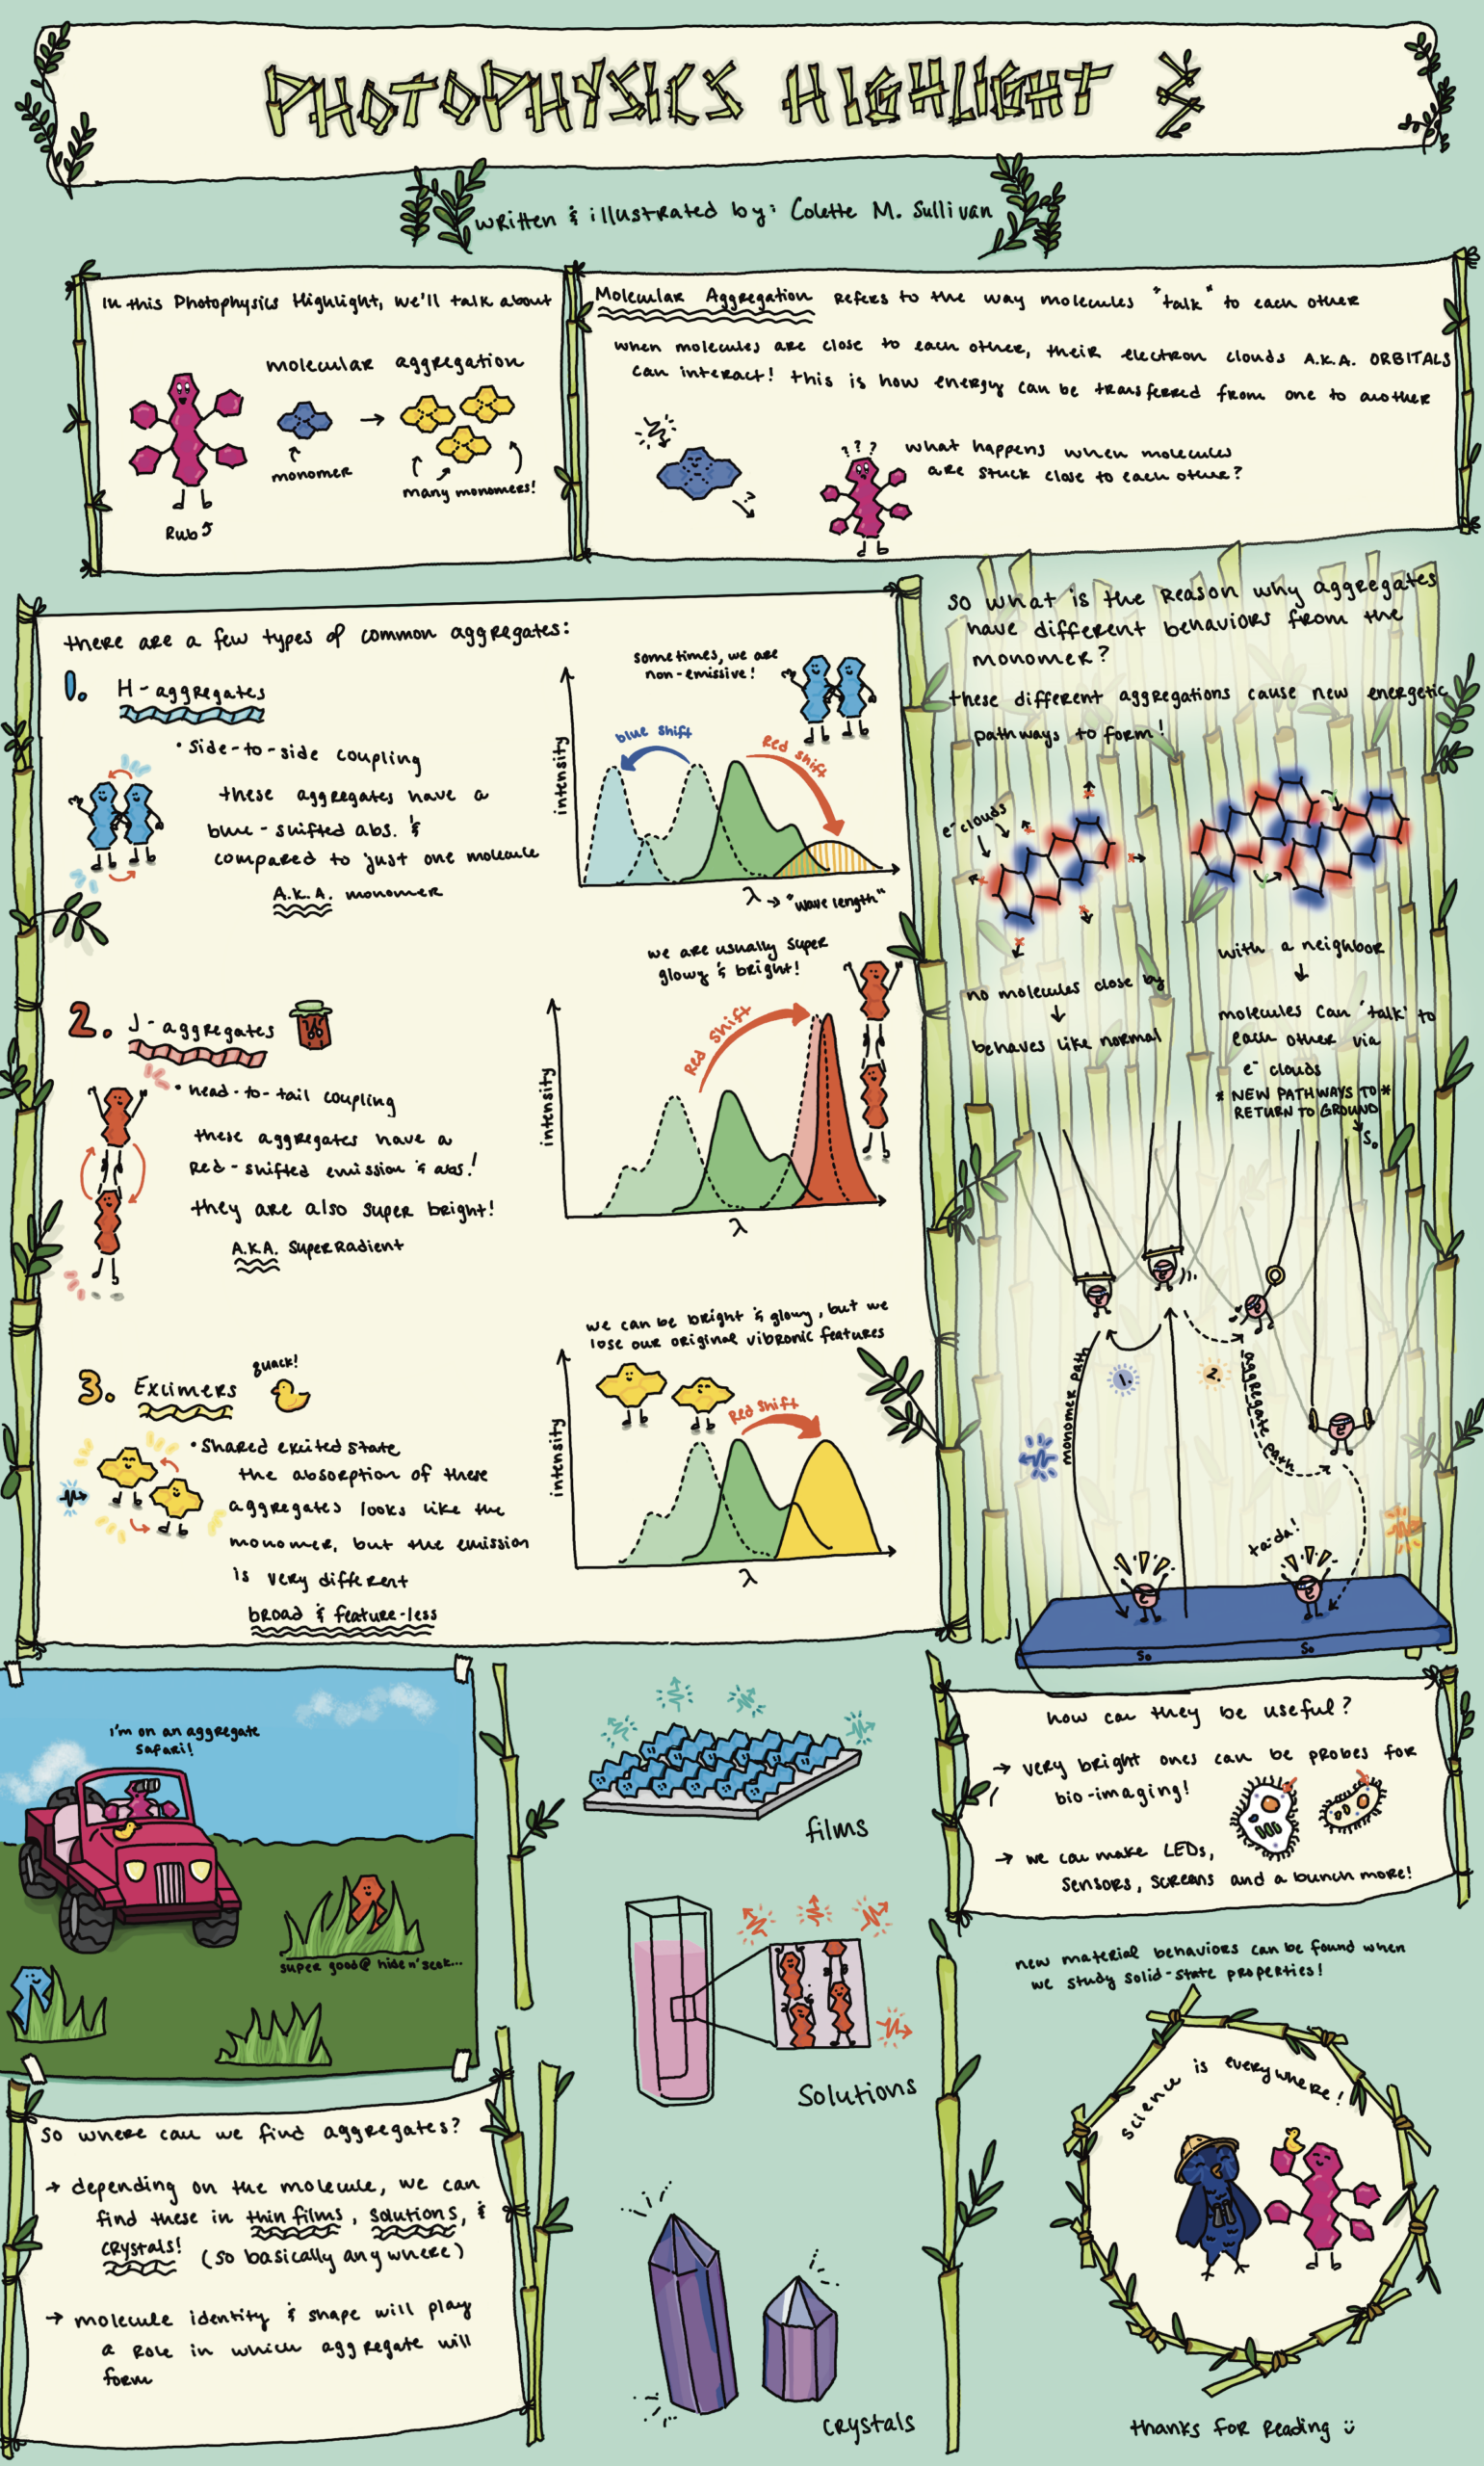 PHOTOPHYSICS HIGHLIGHT 3
written & illustrated by: Colette M. Sullivan
In this Photophysics Highlight, we'll talk about
molecular aggregation
monomer
many monomers!
Rub
Molecular Aggregation refers to the way molecules "talk" to each other
when molecules are close to each other, their electron clouds A.K.A. ORBITALS
can interact! this is how energy can be transferred from one to another
???
what happens when molecules
are stuck close to each other?
there are a few types of common aggregates:
1. H-aggregates
• side-to-side coupling
these aggregates have a
blue-shifted abs. &
compared to just one molecule
A.K.A. monomer
sometimes, we are
non-emissive!
blue shift
Red shift
intensity
λ → "wave length"
2. J-aggregates
• head-to-tail coupling
these aggregates have a
red-shifted emission & abs!
they are also super bright!
A.K.A. SuperRadient
we are usually super
glowy & bright!
Red shift
intensity
λ
3. Excimers
quack!
• shared excited state
the absorption of these
aggregates looks like the
monomer, but the emission
is very different
broad & feature-less
we can be bright & glowy, but we
lose our original vibronic features
Red shift
intensity
λ
so what is the reason why aggregates
have different behaviors from the
monomer?
these different aggregations cause new energetic
pathways to form!
e⁻ clouds
no molecules close by
↓
behaves like normal
with a neighbor
↓
molecules can 'talk' to
each other via
e⁻ clouds
* NEW PATHWAYS TO *
RETURN TO GROUND
S₀
monomer path
1.
2.
aggregate path
ta-da!
S₀
S₀
I'm on an aggregate
safari!
super good @ hide n' seek...
films
solutions
crystals
how can they be useful?
→ very bright ones can be probes for
bio-imaging!
→ we can make LEDs,
sensors, screens and a bunch more!
new material behaviors can be found when
we study solid-state properties!
so where can we find aggregates?
→ depending on the molecule, we can
find these in thin films, solutions, &
crystals! (so basically anywhere)
→ molecule identity & shape will play
a role in which aggregate will
form
science is everywhere!
thanks for reading ü